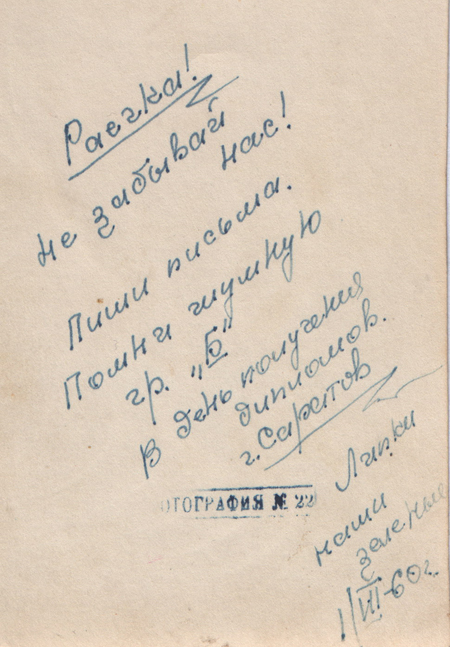 Раечка!
Не забывай
нас!
Пиши письма.
Помни шумную
гр. „Б"
В день получения
дипломов.
г. Саратов
Липки
наши
зеленые
1/VII-60г.
ОТОГРАФИЯ № 22